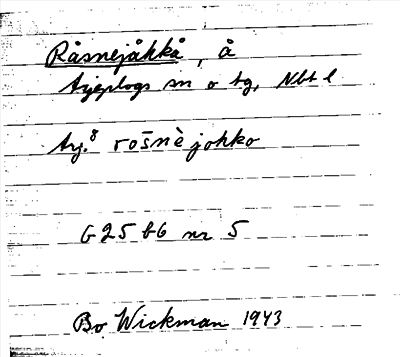 Råsnejåkkå, å
Arjeplogs sn o tg, Nbt l
Arj.8 rošnè johko
G 25 b6 nr 5
Bo Wickman 1943